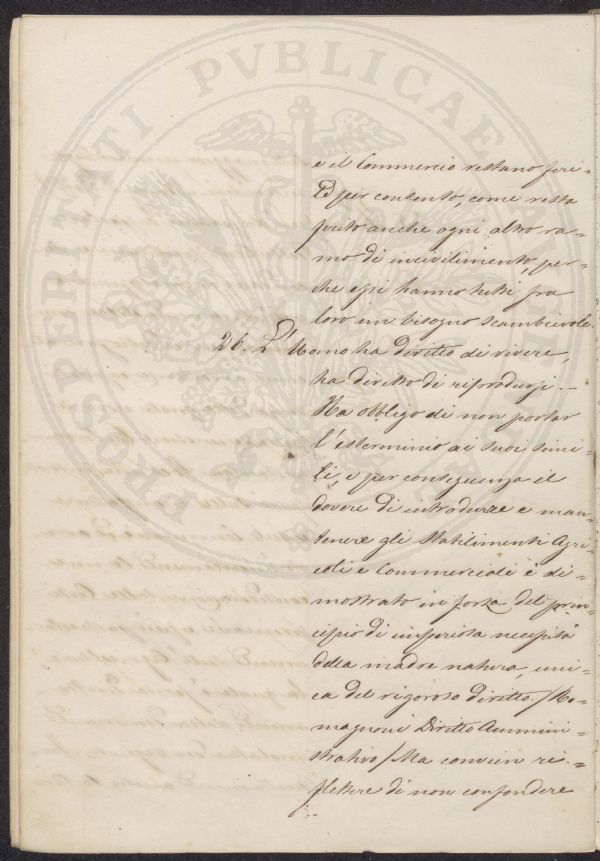 PROSPERITATI PVBLICAE
e il Commercio restano feri=
ti per contento, come resta
ferito anche ogni altro ra=
mo di incivilimento, per=
che essi hanno tutti fra
loro un bisogno scambievole.
26. L'Uomo ha diritto di vivere,
ha diritto di riprodursi. -
Ha obbligo di non portar
l'esterminio ai suoi simi=
li, e per conseguenza il
dovere di introdurre e man=
tenere gli Stabilimenti Agri=
coli e Commerciali è di=
mostrato in forza del prin=
cipio di imperiosa necessità
della madre natura, uni=
ca del rigoroso diritto. /Ro=
magnosi Diritto Ammini=
strativo/ Ma convien ri=
flettere di non confondere